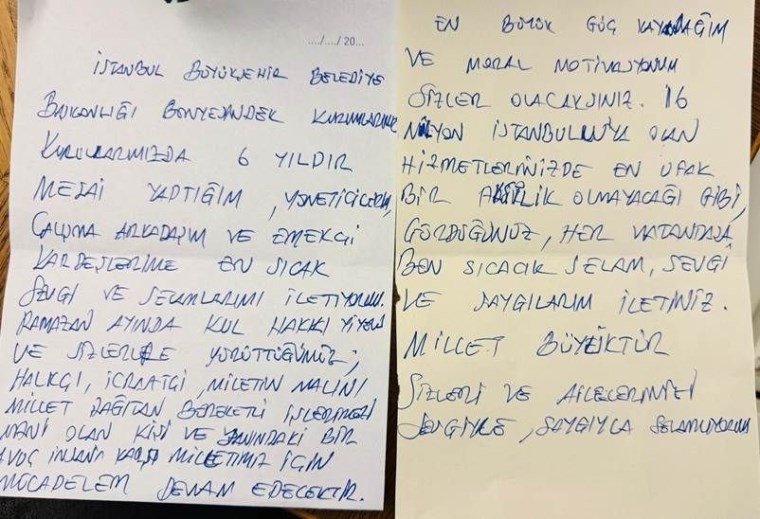 ..../..../ 20...
İSTANBUL BÜYÜKŞEHİR BELEDİYE
BAŞKANLIĞI BÜNYESİNDEKİ KURUMLARIMIZ
KURULLARIMIZDA 6 YILDIR
MESAİ YAPTIĞIM, YÖNETİCİLERİM,
ÇALIŞMA ARKADAŞIM VE EMEKÇİ
KARDEŞLERİME EN SICAK
SEVGİ VE SELAMLARIMI İLETİYORUM.
RAMAZAN AYINDA KUL HAKKI YİYEN
VE SİZLERLE YÜRÜTTÜĞÜMÜZ;
HALKÇI, İCRAATÇI, MİLETİN MALINI
MİLLET DAĞITAN BEREKETLİ İŞLERİMİZİ
MANİ OLAN KİŞİ VE YANINDAKİ BİR
AVUÇ İNSANA KARŞI MİLLETİMİZ İÇİN
MÜCADELEM DEVAM EDECEKTİR.
EN BÜYÜK GÜÇ KAYNAĞIM
VE MORAL MOTİVASYONUM
SİZLER OLACAKSINIZ. 16
MİLYON İSTANBULLU'YA OLAN
HİZMETLERİNİZDE EN UFAK
BİR AKSİLİK OLMAYACAĞI GİBİ,
GÖRDÜĞÜNÜZ, HER VATANDAŞA
BEN SICACIK SELAM, SEVGİ
VE SAYGILARIM İLETİNİZ.
MİLLET BÜYÜKTÜR
SİZLERİ VE AİLELERİNİZİ
SEVGİYLE, SAYGIYLA SELAMLIYORUM